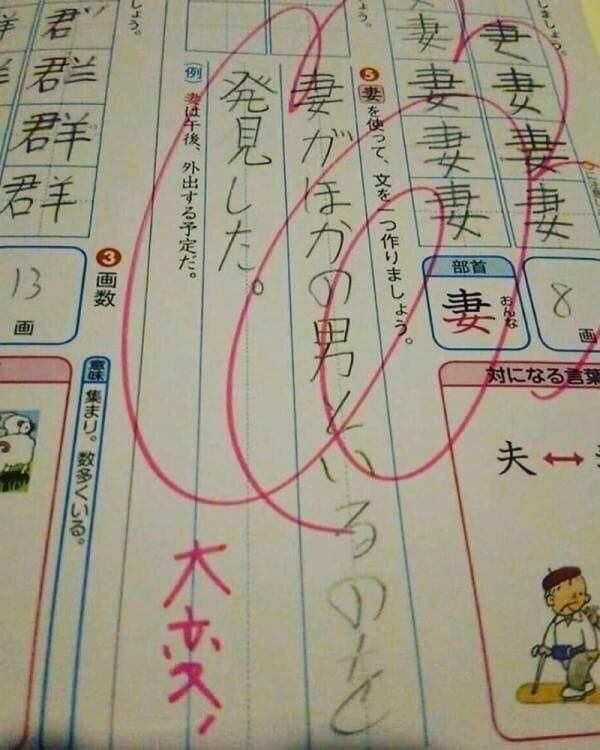 しましょう。
妻
妻
妻
妻
妻
妻
妻
妻
8
画
部首
妻
おんな
対になる言葉
夫↔
う。
❺妻を使って、文を一つ作りましょう。
妻がほかの男といるのを
発見した。
例 妻は午後、外出する予定だ。
大変!
しょう。
君
群
群
群
❸画数
13
画
意味 集まり。数多くいる。